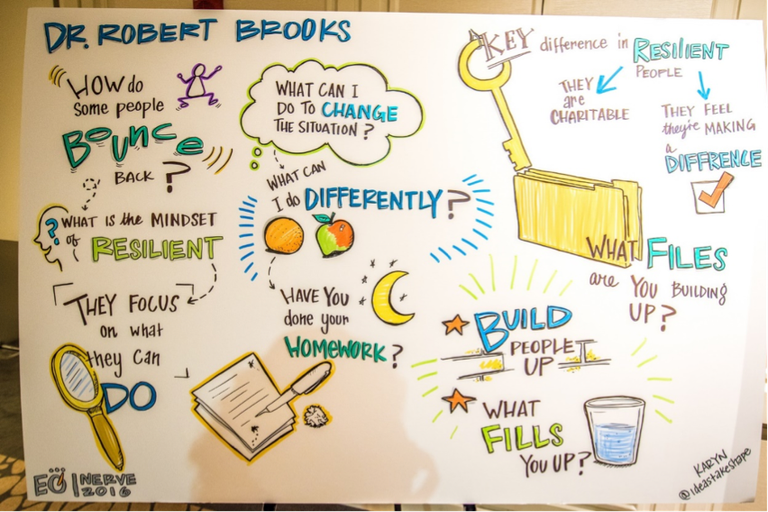 DR. ROBERT BROOKS
HOW do
some people
BOUNCE
BACK?
?
WHAT is the MINDSET
of RESILIENT
THEY FOCUS
on what
they CAN
DO
WHAT CAN I
DO TO CHANGE
THE SITUATION?
WHAT CAN
I do DIFFERENTLY?
HAVE YOU
done your
HOMEWORK?
A KEY difference in RESILIENT
PEOPLE
THEY
are
CHARITABLE
THEY FEEL
they're MAKING
a
DIFFRENCE
WHAT FILES
are YOU BUILDING
UP?
BUILD
PEOPLE
UP
WHAT
FILLS
YOU UP?
EO | NERVE
2016
KARYN
@ideastakeshape